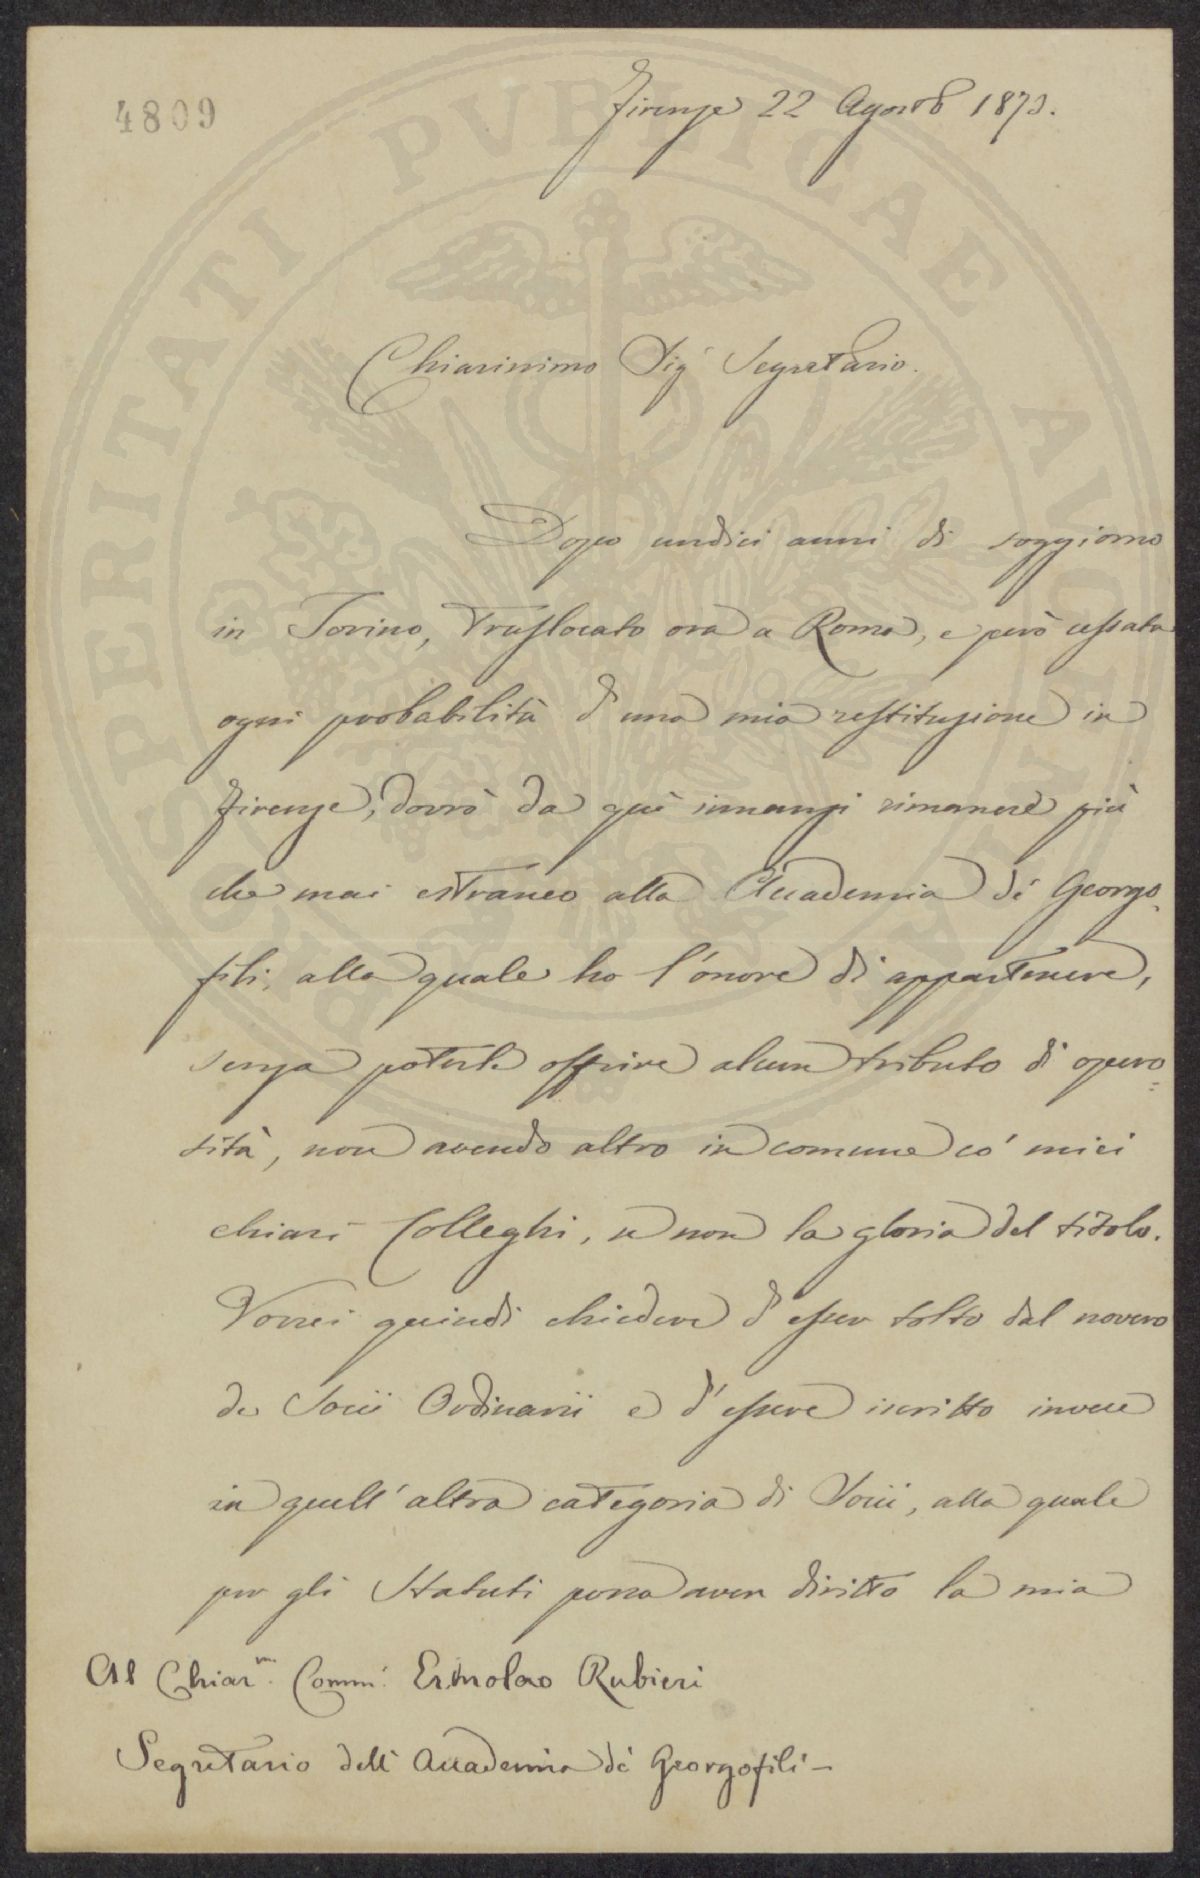 4809
Firenze 22 Agosto 1873.
Chiarissimo Sig.r Segretario.
Dopo undici anni di soggiorno
in Torino, traslocato ora a Roma, e però cessata
ogni probabilità d'una mia restituzione in
Firenze, dovrò da qui innanzi rimanere più
che mai estraneo alla Accademia de' Georgo-
fili, alla quale ho l'onore di appartenere,
senza poterle offrire alcun tributo di opero=
sità, non avendo altro in comune co' miei
chiari Colleghi, se non la gloria del titolo.
Vorrei quindi chiedere d'esser tolto dal novero
de Socii Ordinarii e d'essere iscritto invece
in quell'altra categoria di Socii, alla quale
per gli Statuti possa aver diritto la mia
Al Chiar.mo Comm. Ermolao Rubieri
Segretario dell'Accademia de' Georgofili -
PROSPERITATI PVBLICAE AVGENDAE